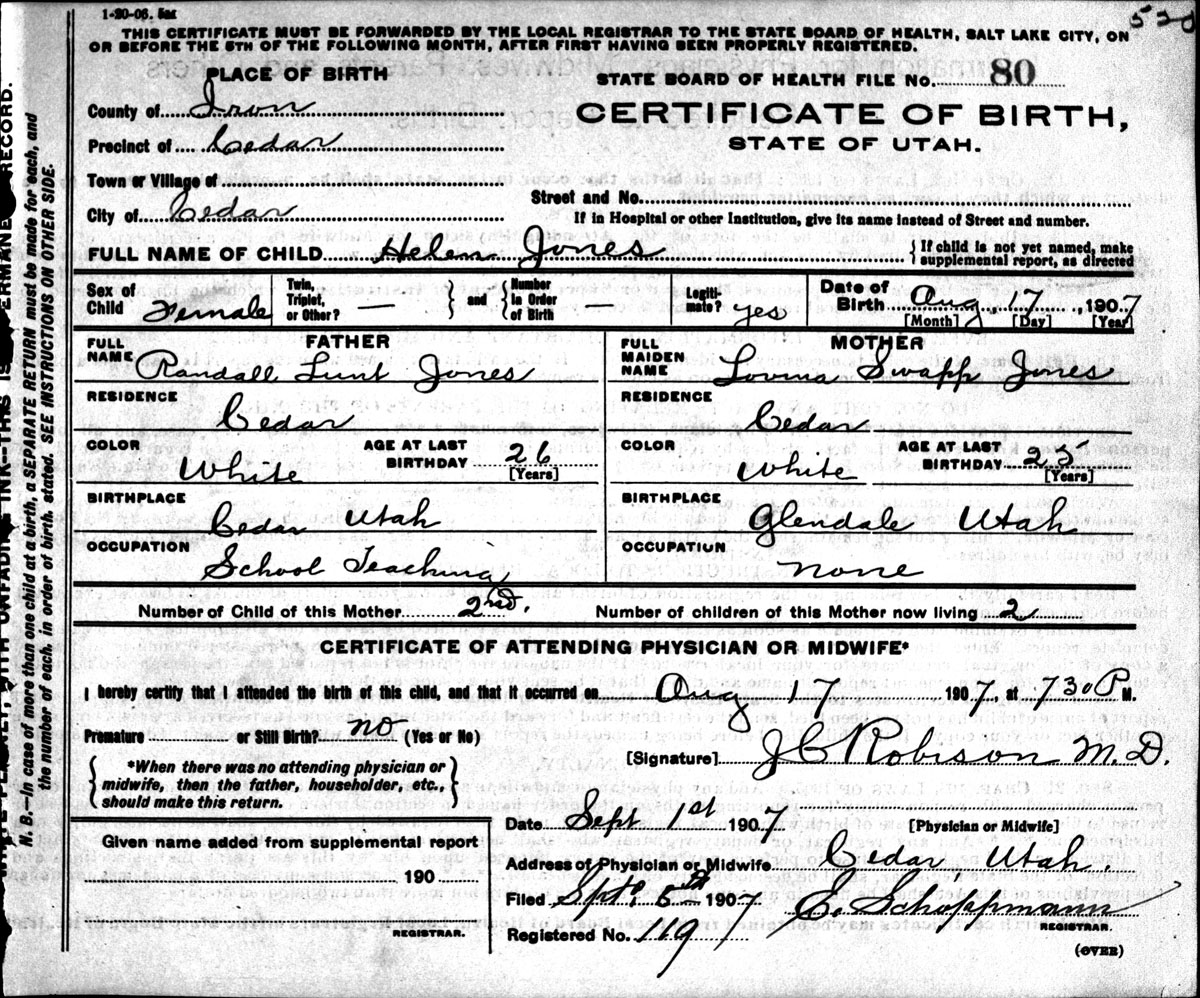 1-20-06. 5M
520
THIS CERTIFICATE MUST BE FORWARDED BY THE LOCAL REGISTRAR TO THE STATE BOARD OF HEALTH, SALT LAKE CITY, ON
OR BEFORE THE 5TH OF THE FOLLOWING MONTH, AFTER FIRST HAVING BEEN PROPERLY REGISTERED.
PLACE OF BIRTH
STATE BOARD OF HEALTH FILE No. 80
County of Iron
CERTIFICATE OF BIRTH,
Precinct of Cedar
STATE OF UTAH.
Town or Village of
Street and No.
City of Cedar
If in Hospital or other Institution, give its name instead of Street and number.
FULL NAME OF CHILD Helen Jones
{ If child is not yet named, make
supplemental report, as directed
Sex of Child Female
Twin, Triplet, or Other? —
} and { Number in Order of Birth —
Legiti-mate? yes
Date of Birth Aug 17, 1907
[Month] [Day] [Year]
FATHER
FULL NAME Randall Lunt Jones
MOTHER
FULL MAIDEN NAME Lovina Swapp Jones
RESIDENCE Cedar
RESIDENCE Cedar
COLOR White
AGE AT LAST BIRTHDAY 26 [Years]
COLOR White
AGE AT LAST BIRTHDAY 25 [Years]
BIRTHPLACE Cedar Utah
BIRTHPLACE Glendale Utah
OCCUPATION School Teaching
OCCUPATION none
Number of Child of this Mother 2nd.
Number of children of this Mother now living 2
CERTIFICATE OF ATTENDING PHYSICIAN OR MIDWIFE*
I hereby certify that I attended the birth of this child, and that it occurred on Aug 17 1907, at 730 P M.
Premature or Still Birth? no (Yes or No)
[Signature] J C Robison M.D.
{ *When there was no attending physician or
midwife, then the father, householder, etc.,
should make this return. }
Date Sept 1st 1907
[Physician or Midwife]
Given name added from supplemental report
190
REGISTRAR.
Address of Physician or Midwife Cedar Utah
Filed Sept. 5th 1907 E. Schoppmann
REGISTRAR.
Registered No. 119
(OVER)
N. B.—In case of more than one child at a birth, a SEPARATE RETURN must be made for each, and
the number of each, in order of birth, stated. SEE INSTRUCTIONS ON OTHER SIDE.